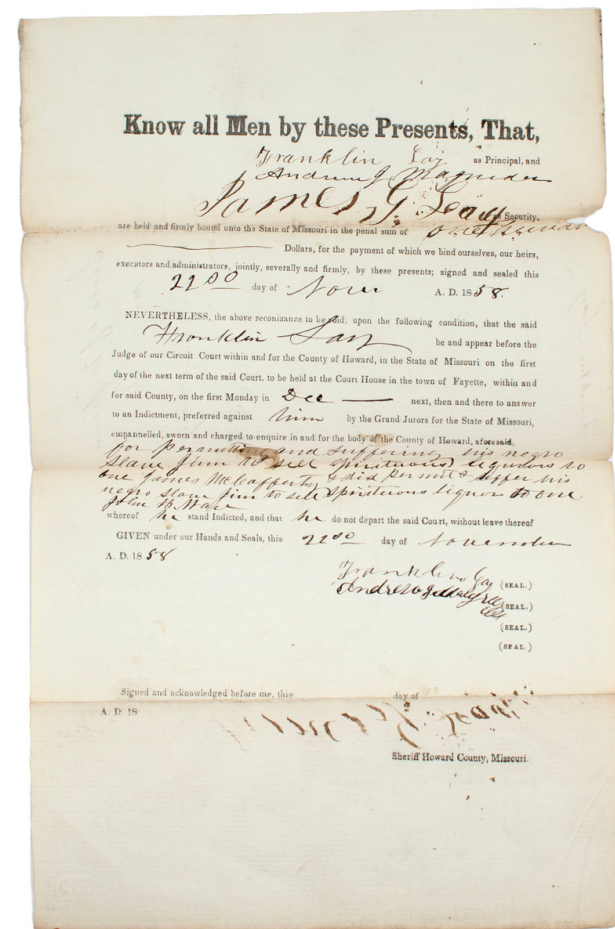 Know all Men by these Presents, That,
Franklin Gay as Principal, and
Andrew J Magruder
James G. Leady as his Security,
are held and firmly bound unto the State of Missouri in the penal sum of one thousan
Dollars, for the payment of which we bind ourselves, our heirs,
executors and administrators, jointly, severally and firmly, by these presents; signed and sealed this
22nd day of Nov A. D. 1858.
NEVERTHELESS, the above reconizance to be void, upon the following condition, that the said
Franklin Gay be and appear before the
Judge of our Circuit Court within and for the County of Howard, in the State of Missouri on the first
day of the next term of the said Court, to be held at the Court House in the town of Fayette, within and
for said County, on the first Monday in Dec — next, then and there to answer
to an Indictment, preferred against him by the Grand Jurors for the State of Missouri,
empannelled, sworn and charged to enquire in and for the body of the County of Howard, aforesaid,
for permitting and suffering his negro
slave Jim to sell spirituous liquors to
one James McCafferty & did permit & suffer his
negro slave Jim to sell spirituous liquor to one
John B. Ware
whereof he stand Indicted, and that he do not depart the said Court, without leave thereof
GIVEN under our Hands and Seals, this 22nd day of November
A. D. 1858
Franklin Gay (SEAL.)
Andrew J (SEAL.)
(SEAL.)
(SEAL.)
Signed and acknowledged before me, this day of
A. D. 18
Sheriff Howard County, Missouri.